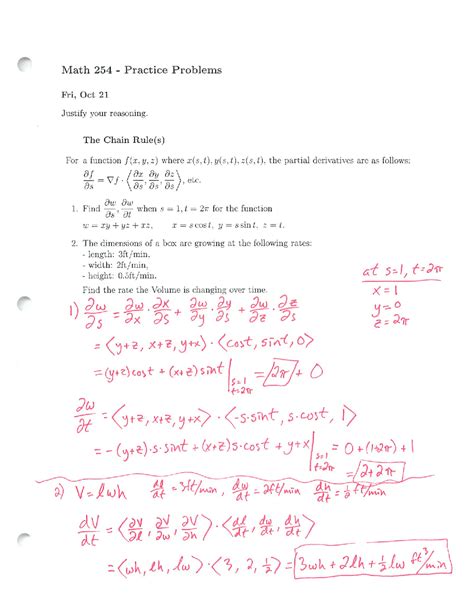 Math 254 - Practice Problems
Fri, Oct 21
Justify your reasoning.
The Chain Rule(s)
For a function f(x, y, z) where x(s, t), y(s, t), z(s, t), the partial derivatives are as follows:
∂f/∂s = ∇f · ⟨∂x/∂s, ∂y/∂s, ∂z/∂s⟩, etc.
1. Find ∂w/∂s, ∂w/∂t when s = 1, t = 2π for the function
w = xy + yz + xz, x = s cos t, y = s sin t, z = t.
2. The dimensions of a box are growing at the following rates:
- length: 3ft/min,
- width: 2ft/min,
- height: 0.5ft/min.
Find the rate the Volume is changing over time.
at s=1, t=2π
x = 1
y = 0
z = 2π
1) ∂w/∂s = ∂w/∂x · ∂x/∂s + ∂w/∂y · ∂y/∂s + ∂w/∂z · ∂z/∂s
= ⟨y+z, x+z, y+x⟩ · ⟨cost, sint, 0⟩
= (y+z)cost + (x+z)sint |s=1 t=2π = 2π + 0
∂w/∂t = ⟨y+z, x+z, y+x⟩ · ⟨-s·sint, s·cost, 1⟩
= -(y+z)·s·sint + (x+z)s·cost + y+x |s=1 t=2π = 0+(1+2π)+1
= 2+2π
2) V = lwh dl/dt = 3ft/min, dw/dt = 2ft/min, dh/dt = 1/2 ft/min
dV/dt = ⟨∂V/∂l, ∂V/∂w, ∂V/∂h⟩ · ⟨dl/dt, dw/dt, dh/dt⟩
= ⟨wh, lh, lw⟩ · ⟨3, 2, 1/2⟩ = 3wh + 2lh + 1/2 lw ft³/min